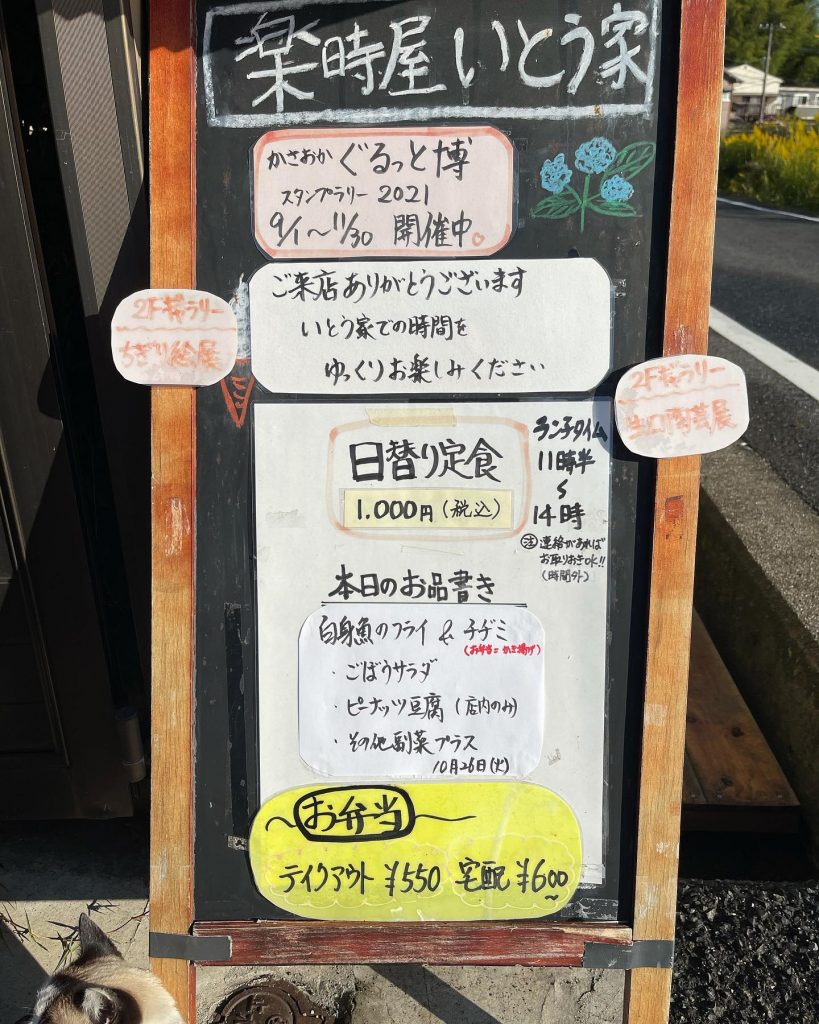 楽時屋 いとう家
かさおか ぐるっと博
スタンプラリー 2021
9/1〜11/30 開催中。
ご来店ありがとうございます
いとう家での時間を
ゆっくりお楽しみください
2Fギャラリー
ちぎり絵展
2Fギャラリー
陶芸展
日替り定食
1.000円(税込)
ランチタイム
11時半
〜
14時
注 連絡があれば
お取りおきOK!!
(時間外)
本日のお品書き
白身魚のフライ & チヂミ
(お弁当=かき揚げ)
・ごぼうサラダ
・ピーナッツ豆腐(店内のみ)
・その他副菜プラス
10月26日(火)
お弁当
テイクアウト ¥550 宅配 ¥600〜